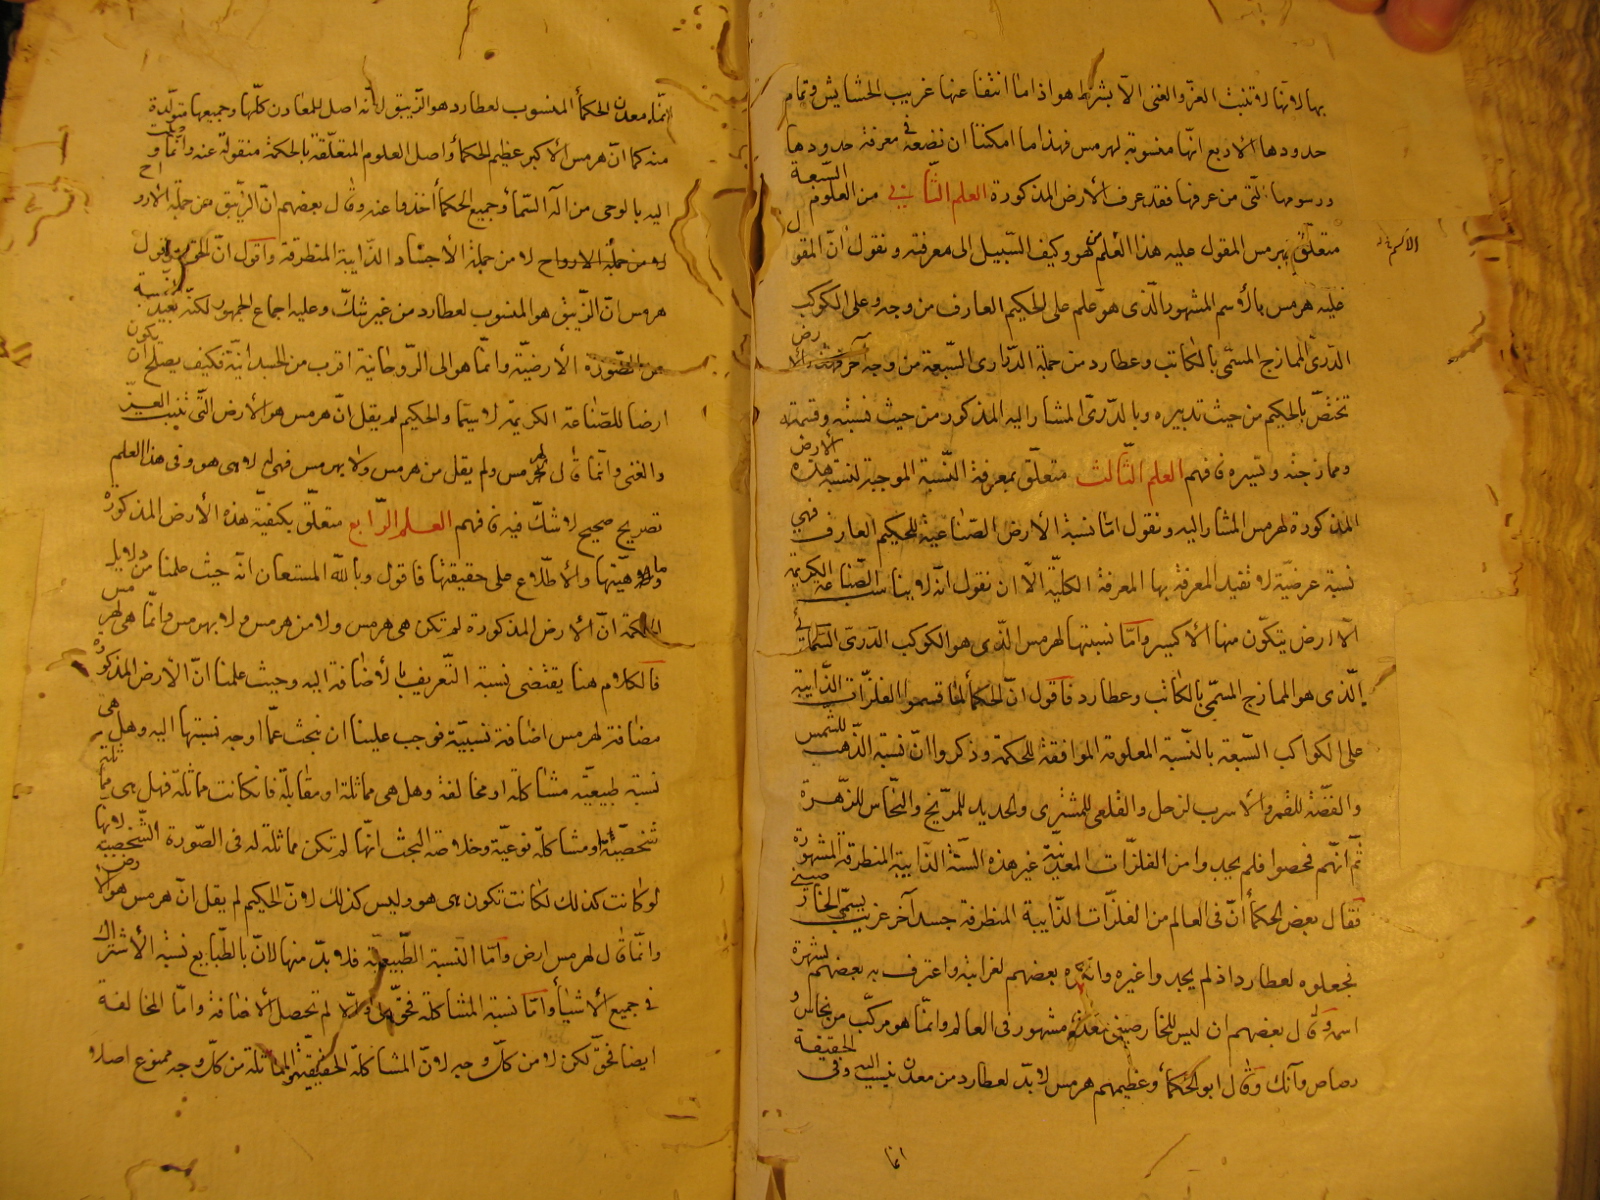 بها لانها لا تنبت العز والغنى الا بشرط هو اذا ما انتفا عنها غريب الحشايش وتمام
حدودها الاربع انها منسوبة لهرمس فهذا ما امكننا ان نضعه في معرفة حدودها
ورسومها التى من عرفها فقد عرف الأرض المذكورة العلم الثاني من العلوم السبعة
متعلق بهرمس المقول عليه هذا العلم من هو وكيف السبيل الى معرفته ونقول ان المقول
عليه هرمس بالأسم المشهور الذى هو علم على الحكيم العارف من وجه وعلى الكوكب
الدرى الممازج المسمى بالكاتب وعطارد من جملة الدرارى السبعة من وجه آخر فهذه الأرض
تختص بالحكيم من حيث تدبيره وبالدرى المشار اليه المذكور من حيث نسبته وقسمته
وممازجته وتسييره فافهم العلم الثالث متعلق بمعرفة النسبة الموجبة لنسبة هذه الأرض
المذكورة لهرمس المشار اليه ونقول اما نسبة الأرض الصناعية للحكيم العارف فهي
نسبة عرضية لا تفيد المعرفة بها المعرفة الكلية الا ان نقول انه لا يناسب الصناعة الكريمة
الا ارض يتكون منها الأكسير واما نسبتها لهرمس الذى هو الكوكب الدرى السمائي
الذى هو الممازج المسمى بالكاتب وعطارد فاقول ان الحكمأ لما قسموا الفلزات الذايبة
على الكواكب السبعة بالنسبة المعلومة الموافقة للحكمة وذكروا ان نسبة الذهب للشمس
والفضة للقمر والأسرب لزحل والقلعى للمشترى والحديد للمريخ والنحاس للزهرة
ثم انهم فحصوا فلم يجدوا من الفلزات المعدنية غير هذه الستة الذايبة المنطرقة المشهورة
فقال بعض الحكمأ ان فى العالم من الفلزات الذايبة المنطرقة جسد آخر غريب يسمى الخارصيني
فجعلوه لعطارد اذ لم يجدوا غيره وانكره بعضهم لغرابته واعترف به بعضهم لشهرة
اسمه وقال بعضهم ان ليس للخارصينى معدن مشهور فى العالم وانما هو مركب من نحاس و
رصاص وآنك وقال ابو الحكمأ وعظيمهم هرمس لا بد لعطارد من معدن ينسب اليه وفى الحقيقة
الاسم
انما
انما معدن الحكمأ المنسوب لعطارد هو الزيبق لأنه اصل للمعادن كلها وجميعها متولدة
منه كما ان هرمس الأكبر عظيم الحكمأ واصل العلوم المتعلقة بالحكمة منقولة عنه وانما وصلت
اليه بالوحى من آله السمأ وجميع الحكمأ أخذوا عنه وقال بعضهم ان الزيبق من جملة الارواح
لا من جملة الأجساد الذايبة المنطرقة واقول ان الحق قول
هرمس ان الزيبق هو المنسوب لعطارد من غير شك وعليه اجماع الجمهور لكنه بعيد النسبة
من الصورة الأرضية وانما هو الى الروحانية اقرب من الجسدانية فكيف يصلح ان يكون
ارضا للصناعة الكريمة لا سيما والحكيم لم يقل ان هرمس هو الأرض التى تنبت العز
والغنى وانما قال لهرمس ولم يقل من هرمس ولا بهرمس فهى له لا هى هو وفى هذا العلم
تصريح صحيح لا شك فيه فافهم العلم الرابع متعلق بكيفية هذه الأرض المذكورة
وماهيتها والأطلاع على حقيقتها فاقول وبالله المستعان انه حيث علمنا من دلايل
الحكمة ان الأرض المذكورة لم تكن هى هرمس ولا من هرمس ولا بهرمس وانما هى لهرمس
فالكلام هنا يقتضى نسبة التعريف بالأضافة اليه وحيث علمنا ان الارض المذكورة
مضافة لهرمس اضافة نسبية فوجب علينا ان نبحث عما اوجه نسبتها اليه وهل هى
نسبة طبيعية مشاكلة او مخالفة وهل هى مماثلة او مقابلة فان كانت مماثلة فهل هى مماثلة
شخصية او مشاكلة نوعية وخلاصة البحث انها لم تكن مماثلة له فى الصورة الشخصية لانها
لو كانت كذلك لكانت تكون هى هو وليس كذلك لان الحكيم لم يقل ان هرمس هو الأرض
وانما قال لهرمس ارض واما النسبة الطبيعية فلا بد منها لان بالطبايع نسبة الأشتراك
فى جميع الأشيأ واما نسبة المشاكلة فحق والا لم تحصل الأضافة واما المخالفة
ايضا فحق لكن لا من كل وجه لان المشاكلة الحقيقية والمماثلة من كل وجه ممنوع اصلا